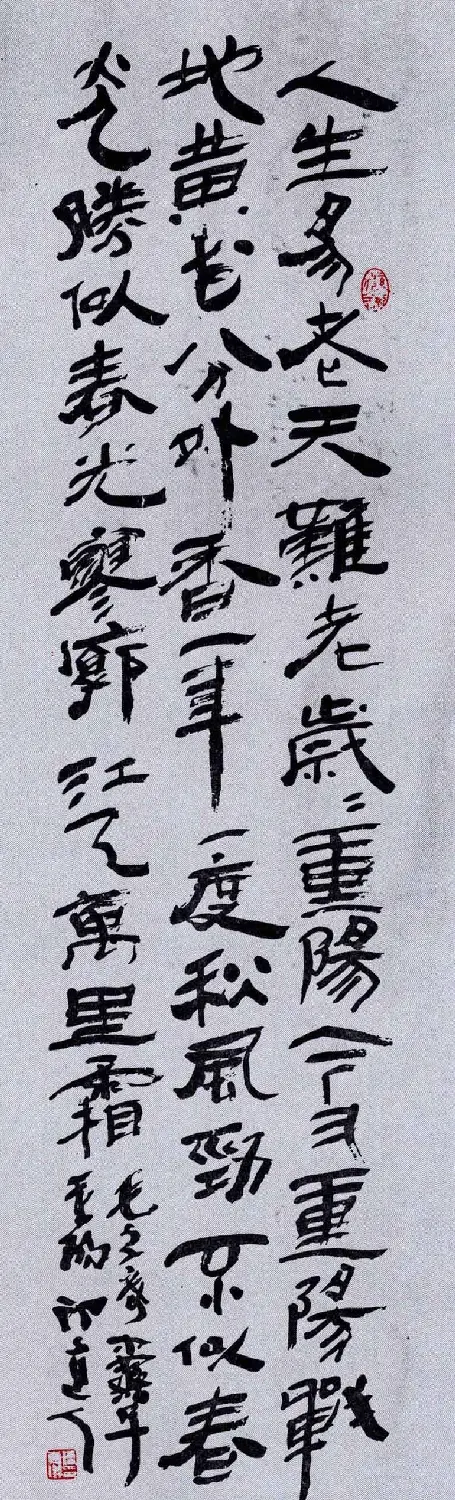 人生易老天難老歲々重陽今又重陽戰
地黄花分外香一年一度秋風勁不似春
光勝似春光寥廓江天萬里霜
重陽